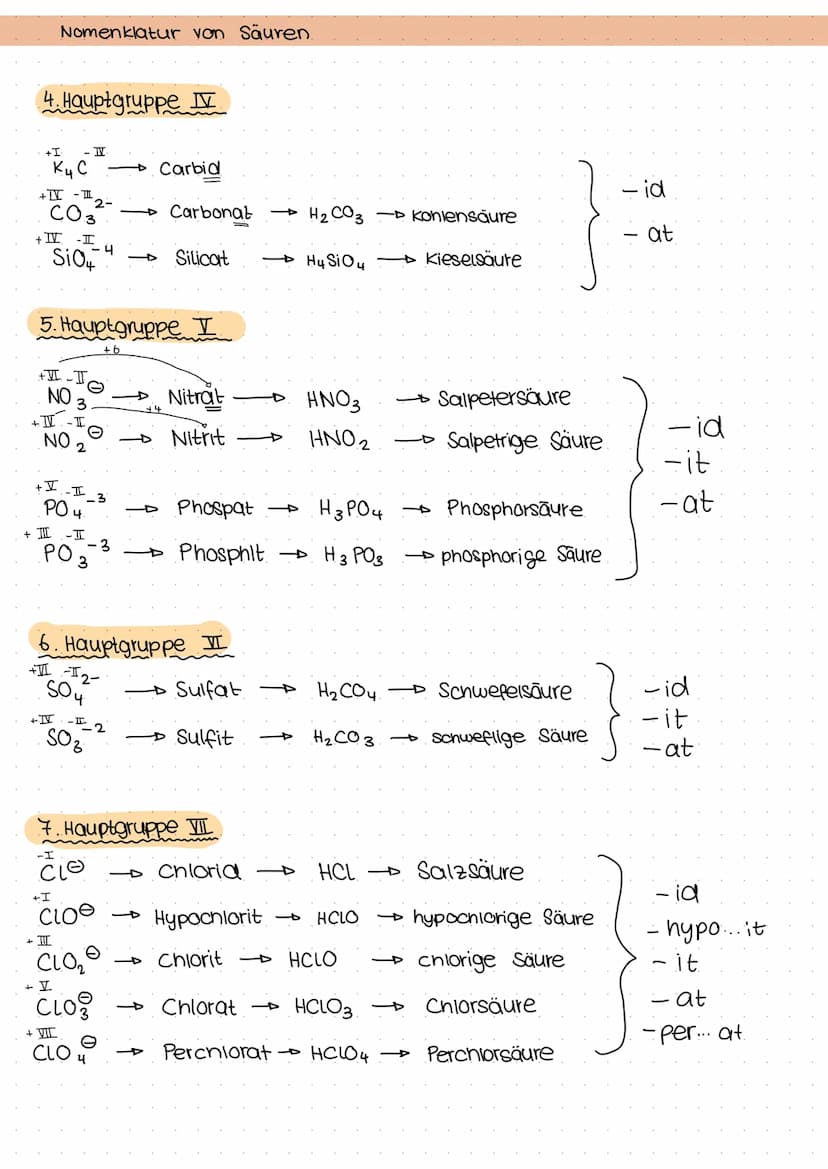 Nomenklatur von Säuren
4. Hauptgruppe IV
+I -IV
K₄C → Carbid
+IV -II
CO₃²⁻ → Carbonat → H₂CO₃ → Kohlensäure
+IV -II
SiO₄⁻⁴ → Silicat → H₄SiO₄ → Kieselsäure
- id
- at
5. Hauptgruppe V
+6
+VI -II
NO₃⊖ → Nitrat → HNO₃ → Salpetersäure
+4
+IV -I
NO₂⊖ → Nitrit → HNO₂ → Salpetrige Säure
+V -II
PO₄⁻³ → Phospat → H₃PO₄ → Phosphorsäure
+III -II
PO₃⁻³ → Phosphit → H₃PO₃ → phosphorige Säure
-id
-it
-at
6. Hauptgruppe VI
+VI -II
SO₄²⁻ → Sulfat → H₂CO₄ → Schwefelsäure
+IV -II
SO₃⁻² → Sulfit → H₂CO₃ → schweflige Säure
-id
-it
-at
7. Hauptgruppe VII
-I
Cl⊖ → Chlorid → HCL → Salzsäure
+I
ClO⊖ → Hypochlorit → HClO → hypochlorige Säure
+III
ClO₂⊖ → Chlorit → HClO → chlorige Säure
+V
ClO₃⊖ → Chlorat → HClO₃ → Chlorsäure
+VII
ClO₄⊖ → Perchlorat → HClO₄ → Perchlorsäure
-id
-hypo...it
-it
-at
-per... at